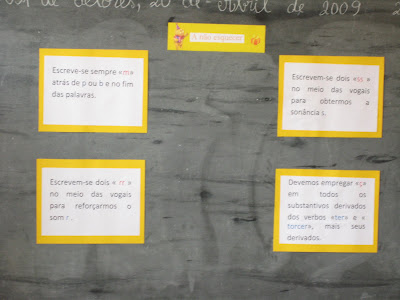 de Setores, 20 de Abril de 2009 2
A não esquecer
Escreve-se sempre «m»
atrás de p ou b e no fim
das palavras.
Escrevem-se dois «ss »
no meio das vogais
para obtermos a
sonância s.
Escrevem-se dois « rr »
no meio das vogais
para reforçarmos o
som r .
Devemos empregar «ç»
em todos os
substantivos derivados
dos verbos «ter» e «
torcer», mais seus
derivados.